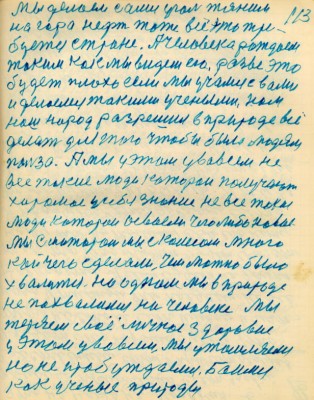 113
Мы делаем сами углом тянем
на гора недт тоже всё это тре-
буется стране. А человека рождаем
таким как мы видим его, разве это
будет плохо если мы учами с вами
и делаемся такими учеными, нам
наш народ разрешил в природе всё
делать для того чтобы была людям
польза. А мы у этом уважаем не
все такие люди которые получают
хорошие у себя знание не все такие
люди которые осваем чего либо новое
Мы с мотором мы с колесом много
кой чего сделали, Чем можно было
хвалится. но одном мы в природе
не похвалились ни человека мы
теряем своё личное здоровие
у этом уважаем мы утомляемся
но не пробуждаемся. Банки
как ученые природы